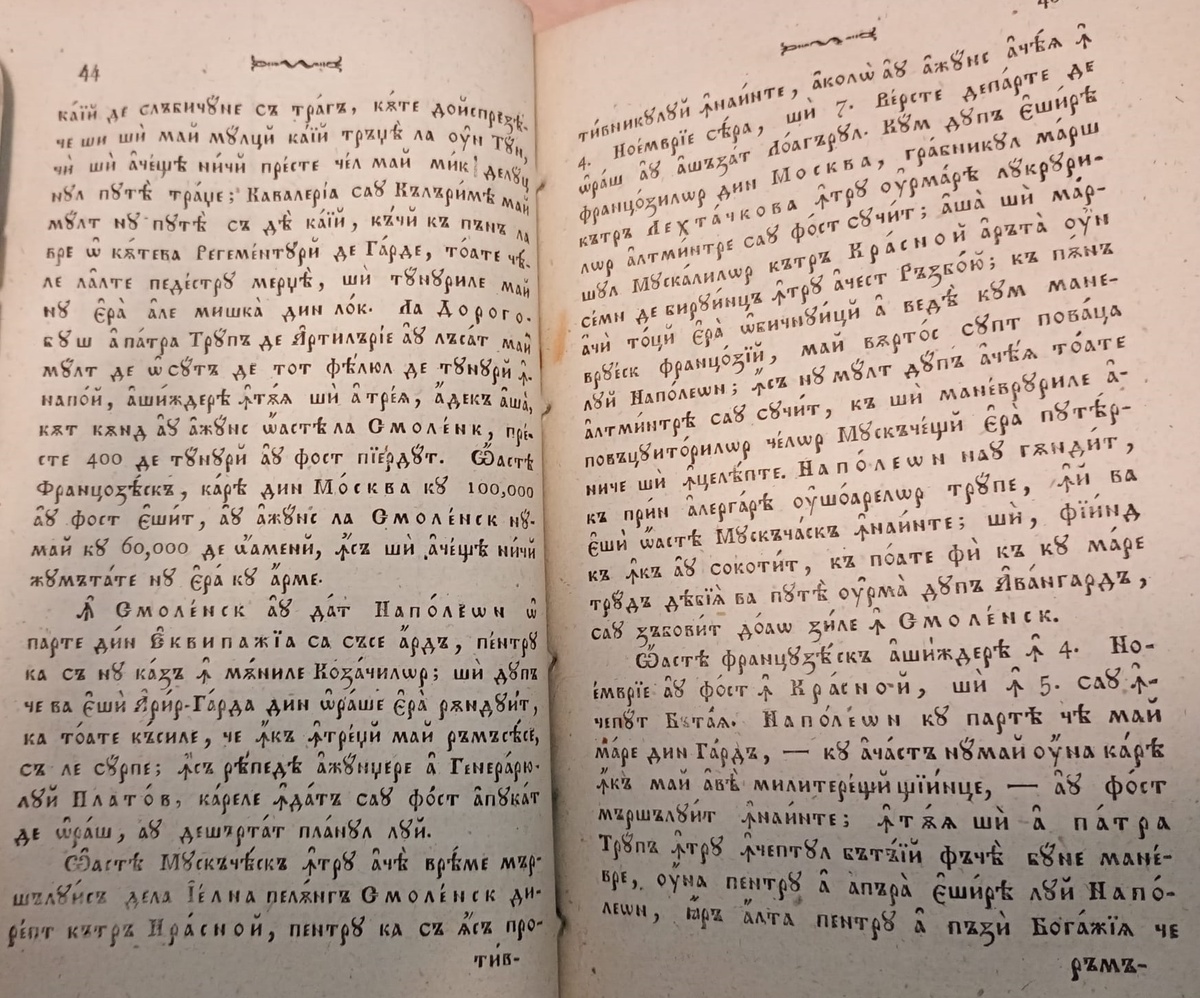 44
ка́їй де слъбичꙋ́не съ тра́гъ, кѫ́те дойспрезѣ́-
че ши шѝ май мꙋлцй ка́їй тръцѣ̀ ла ᲂу҆н Тꙋн,
чѝ шѝ а҆че́щѣ ни́чй пре́сте че́л май ми́к делꙋц
нꙋл пꙋтѣ̀ тра́џе; Кавалері́а саꙋ Кълъри́мѣ май
мꙋлт нꙋ пꙋтѣ̀ съ дѣ̀ ка́їй, къ́чй къ пънъ ла
вре ѡ҆ кѫтева Регеме́нтꙋрй де Га́рде, то́ате чѣ-
ле ла́лте педе́стрꙋ мерџѣ̀, шѝ тꙋнꙋриле май
нꙋ є҆ра̀ а҆ле мишка̀ дин ло́к. Ла Дорого-
бꙋш а҆ па́тра Трꙋпъ де А҆ртилъріе а҆ꙋ лъса́т май
мꙋлт де ѡ҆ сꙋтъ де тот фе́люл де тꙋнꙋрй ꙟ҆-
напо́й, а҆ши́ждерѣ ꙟ҆тѫѧ шѝ а҆ тре́ѧ, а҆́декъ а҆ша̀,
кѫт кѫнд а҆ꙋ а҆жꙋнс ѡ҆астѣ ла Смоле́нк, пре́-
сте 400 де тꙋнꙋрй а҆ꙋ фост пїе́рдꙋт. Ѡ҆астѣ
Французѣ́скъ, ка́рѣ дин Мо́сква кꙋ 100,000
а҆ꙋ фост є҆ши́т, а҆ꙋ а҆жꙋнс ла Смоле́нск нꙋ-
май кꙋ 60,000 де ѡ҆аменй, ꙟ҆съ шѝ а҆че́щѣ ни́чй
жꙋмъта́те нꙋ є҆ра̀ кꙋ а҆́рме.
Ꙟ҆ Смоле́нск а҆ꙋ да́т Напо́леѡн ѡ҆
парте дин Е҆квипажїа са съсе а҆́рдъ, пе́нтрꙋ
ка съ нꙋ ка́зъ ꙟ҆ мѫ́ниле Коза́чилѡр; шѝ дꙋпъ
че ва є҆шѝ А҆рїр-Га́рда дин ѡ҆ра́ше є҆ра̀ рѫндꙋи́т,
ка то́ате къ́силе, че ꙟ҆къ ꙟ҆тре́џй май ръмъсѣ́се,
съ ле сꙋрпе; ꙟ҆съ ре́педѣ а҆жꙋнџере а҆ Генера́рю-
лꙋй Плато́в, ка́реле ꙟ҆да́тъ саꙋ фо́ст а҆пꙋка́т
де ѡ҆ра́ш, аꙋ дешърта́т пла́нꙋл лꙋй.
Ѡ҆астѣ Мꙋскъче́скъ ꙟ҆трꙋ а҆чѣ̀ вре́ме мър-
шълꙋи́сь дела Їе́лна пелѫнгъ Смоле́нск ди-
ре́пт кътръ Кра́сной, пентрꙋ ка съ ꙟ҆съ про-
ти́в-
ти́вникꙋлꙋй ꙟ҆наи́нте, а҆колѡ̀ а҆ꙋ а҆жꙋнс а҆че́ѧ ꙟ҆
4. Ное́мврїе се́ра, шѝ 7. Ве́рсте депа́рте де
ѡ҆ра́ш а҆ꙋ а҆шъза́т Ло́агърꙋл. Кꙋм дꙋпъ є҆ши́рѣ
францо́зилѡр дин Москва, гра́бникꙋл марш
кътръ Лехта́чкова ꙟ҆трꙋ ᲂу҆рма́рѣ лꙋкрꙋри-
лѡр а҆лтми́нтре саꙋ фо́ст сꙋчи́т; а҆ша̀ шѝ ма́р-
шꙋл Мꙋска́лилѡр кътръ Кра́сной а҆рътà ᲂу҆н
се́мн де бирꙋи́нцъ ꙟ҆трꙋ а҆чест Ръзбо́ю; къ пѫнъ
а҆чи́ то́цй є҆ра̀ ѡ҆бичнꙋи́цй а҆ ведѣ̀ кꙋм мане-
врꙋе́ск францо́зїй, май вѫрто́с сꙋпт пова́ца
лꙋй Напо́леѡн; ꙟ҆съ нꙋ мꙋлт дꙋпъ а҆че́ѧ то́ате
а҆лтми́нтрѣ саꙋ сꙋчи́т, къ шѝ мане́врꙋриле а҆-
повъцꙋито́рилѡр че́лѡр Мꙋскъче́щй є҆ра̀ пꙋтѣ́р-
ниче шѝ ꙟ҆целе́пте. Напо́леѡн наꙋ гѫнди́т,
къ при́н а҆лерга́рѣ ᲂу҆шо́арелѡр трꙋпе, ꙟ҆й ва
є҆шѝ ѡ҆астѣ Мꙋскъча́скъ ꙟ҆наи́нте; шѝ, фїи́нд
къ ꙟ҆къ а҆ꙋ сокоти́т, къ по́ате фѝ къ кꙋ ма́ре
трꙋдъ дѣбїѧ̀ ва пꙋтѣ̀ ᲂу҆рма̀ дꙋпъ А҆ва́нгардъ,
саꙋ зъбови́т до́аѡ зи́ле ꙟ҆ Смоле́нск.
Ѡ҆астѣ французе́скъ а҆ши́ждерѣ ꙟ҆ 4. Но-
е́мврїе а҆ꙋ фо́ст ꙟ҆ Кра́сной, шѝ ꙟ҆ 5. саꙋ ꙟ҆-
чепꙋт Бъта́ѧ. Напо́леѡн кꙋ партѣ чѣ май
ма́ре дин Га́рдъ, — кꙋ а҆ча́стъ нꙋмай ᲂу҆на ка́рѣ
ꙟ҆къ май а҆вѣ̀ милитере́щй щїи́нце, — а҆ꙋ фо́ст
мършълꙋи́т ꙟ҆наи́нте; ꙟ҆тѫѧ шѝ а҆ па́тра
Трꙋпъ ꙟ҆трꙋ ꙟ҆чептꙋл бътъ́їй фъчѣ̀ бꙋне мане́-
вре, ᲂу҆на пентрꙋ а҆ апъра̀ є҆ши́рѣ лꙋй Напо́-
леѡн, ꙗ҆ръ а҆́лта пентрꙋ а҆ пъзѝ Бога́жїѧ че
ръмъ-